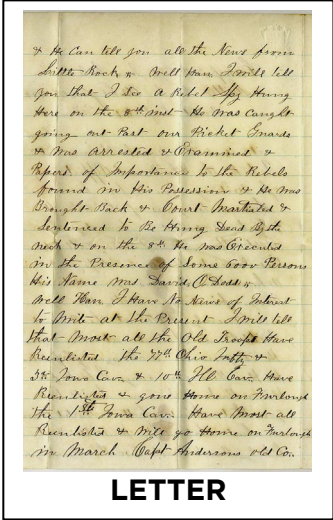 & He Can tell you all the News from
Little Rock & Well Han I will tell
you that I See A Rebel Spy Hung
Here on the 8th inst He was Caught
going out Past our Picket Guards
& Was Arrested & Examined &
Papers of Importance to the Rebels
found in His Possession & He was
Brought Back & Court Martialed &
Sentenced to Be Hung Dead By the
Neck & on the 8th He was Executed
in the Presence of Some 6000 Persons
His Name was David O Dodd
Well Han I Have No News of Interest
to Write at the Present I will tell
that Most all the Old Troops Have
Reenlisted the 77th Ohio Infty &
5th Iowa Cav & 10th Ill Cav Have
Reenlisted & gone Home on Furlough
the 1st Iowa Cav Have Most all
Reenlisted & Will go Home on Furlough
in March Capt Andersons old Co.
LETTER